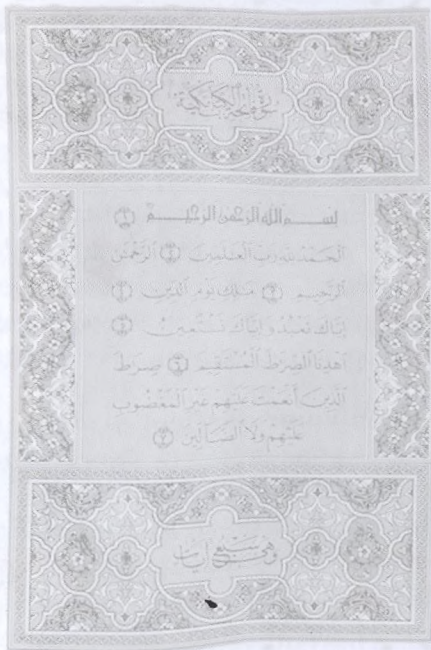 سورة فاتحة الكتاب مكية
بسم الله الرحمن الرحيم ١
الحمد لله رب العلمين ٢ الرحمن
الرحيم ٣ ملك يوم الدين ٤
إياك نعبد وإياك نستعين ٥
اهدنا الصرط المستقيم ٦ صرط
الذين أنعمت عليهم غير المغضوب
عليهم ولا الضالين ٧
وهي سبع آيات